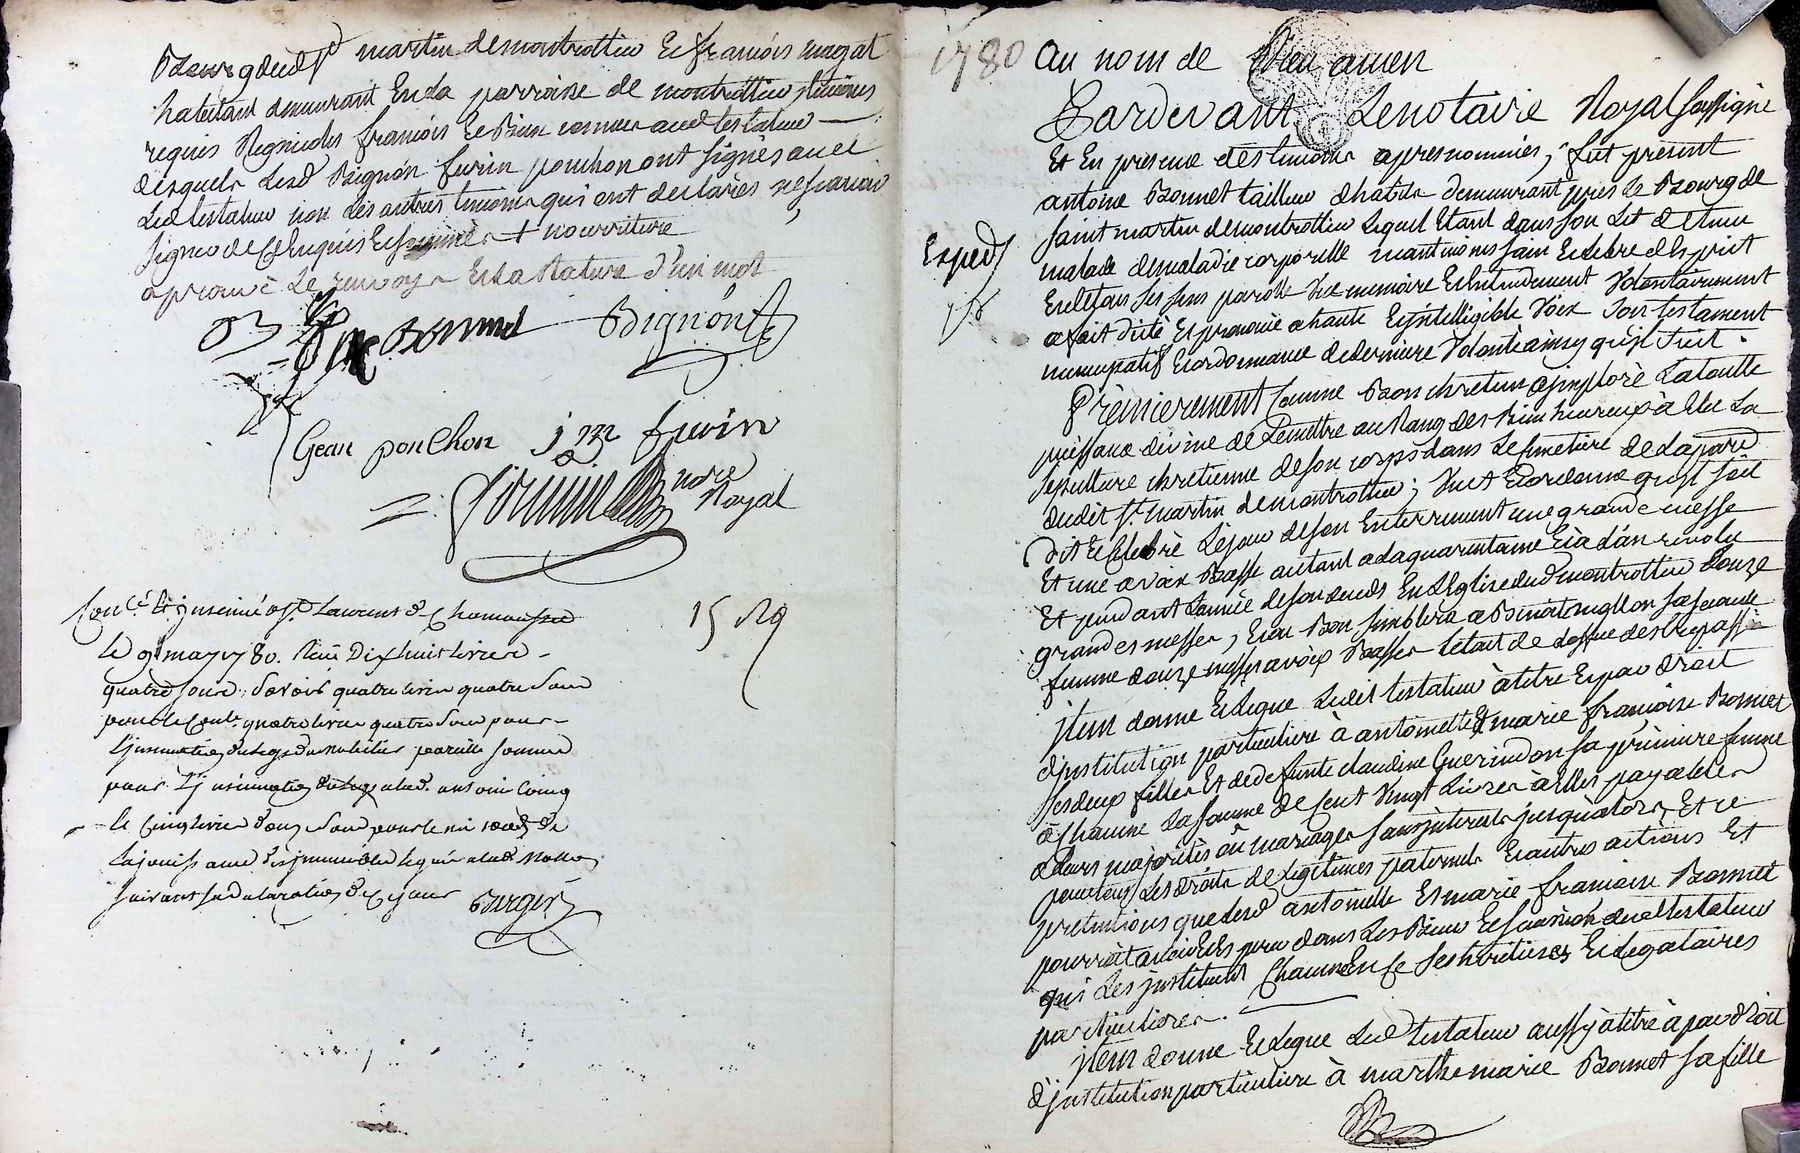 Bourg dud St martin de montrottier Et françois magat
habitant demeurant En la parroisse de montrottier temoins
requis françois Et Bien connu aud testateur
desquels Led Bignón furin ponchon ont signés avec
Led testateur non Les autres temoins qui ont declarés ne scavoir
signer de ce Enquis Et + nourriture
aprouvé Le renvoy Et La Rature d'un mot
Bonnet Bignón
Gean ponChon furin
nore
Royal
Conlé Et jnsinué a St Laurent de Chamousset
Le 9 may 1780. Reçu Dix huit Livres
quatre sous, Savoir quatre livres quatre sous
pour le Conle quatre livres quatre sous pour
L'jnsinuation du Legs du Mobilier pareille somme
pour L'jnsinuation
Et Cinq livres douze sous pour le
La jouissance des jmmeubles Legués
suivant sa declaration de Ce jour
15 Rg
1780 Au nom de Dieu amen
Pardevant Le notaire Royal soussigné
Et En presence des temoins apres nommés, fut présent
antoine Bonnet tailleur d'habits demeurant près Le Bourg de
saint martin de montrottier Lequel Etant dans son Lit detenu
malade de maladie corporelle neantmoins sain Et Libre d'Esprit
Exped
En Letous ses sens parolle Vue memoire Et Entendement Volontairement
a fait dicté Et prononcé a haute Et jntelligible Voix son testament
nuncupatif Et ordonnance de derniere Volonté ainsy qu'jl suit.
Prèmierement Comme Bon chretien a jmploré La toutte
puissance divine de Le mettre au Rang des Bienheureux à Elu La
sepulture chretienne de son corps dans Le cimetiere de La parr
dudit St martin de montrottier; Veut Et ordonne qu'jl soit
dit Et Celebré Le jour de son Enterrement une grande messe
Et une a voix Basse autant a La quarantaine Et à L'an revolu
Et pendant L'année de son deceds En L'Eglise dud montrottier douze
grandes messes, Et
femme douze messes a voix Basses Letout de
jtem donne Et Legue Ledit testateur à titre Et par droit
d'jnstitution particuliere à antoinette Et marie françoise Bonnet
ses deux filles Et de defunte claudine Guerindon sa prèmiere femme
à Chacune La somme de Cent Vingt Livres à Elles payables
a Leurs majorités où mariages sans jnterests jusqu'alors, Et ce
pour tous Les droits de Legitimes paternels Et autres actions Et
pretentions que Lesd antoinette Et marie françoise Bonnet
pourroit avoir Et Espérer dans Les Biens Et succession dud testateur
qui Les jnstituent Chacune En Ce ses heritieres Et Legataires
particulieres.
jtem donne Et Legue Led testateur aussy à titre à par droit
d'jnstitution particuliere à marthe marie Bonnet sa fille